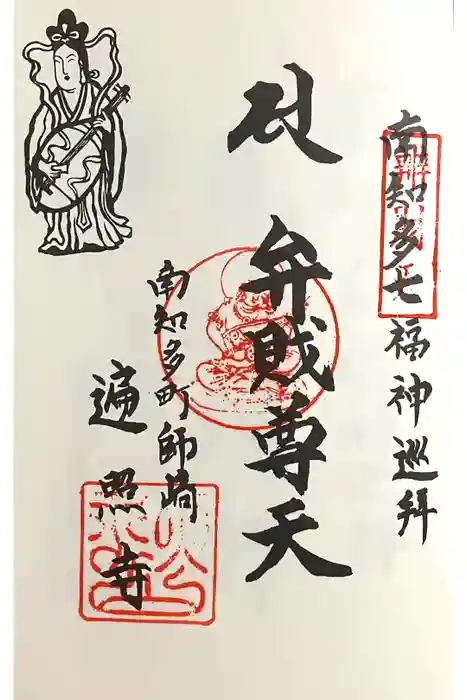 南知多七福神巡拝
弁財尊天
南知多町師﨑
遍照寺